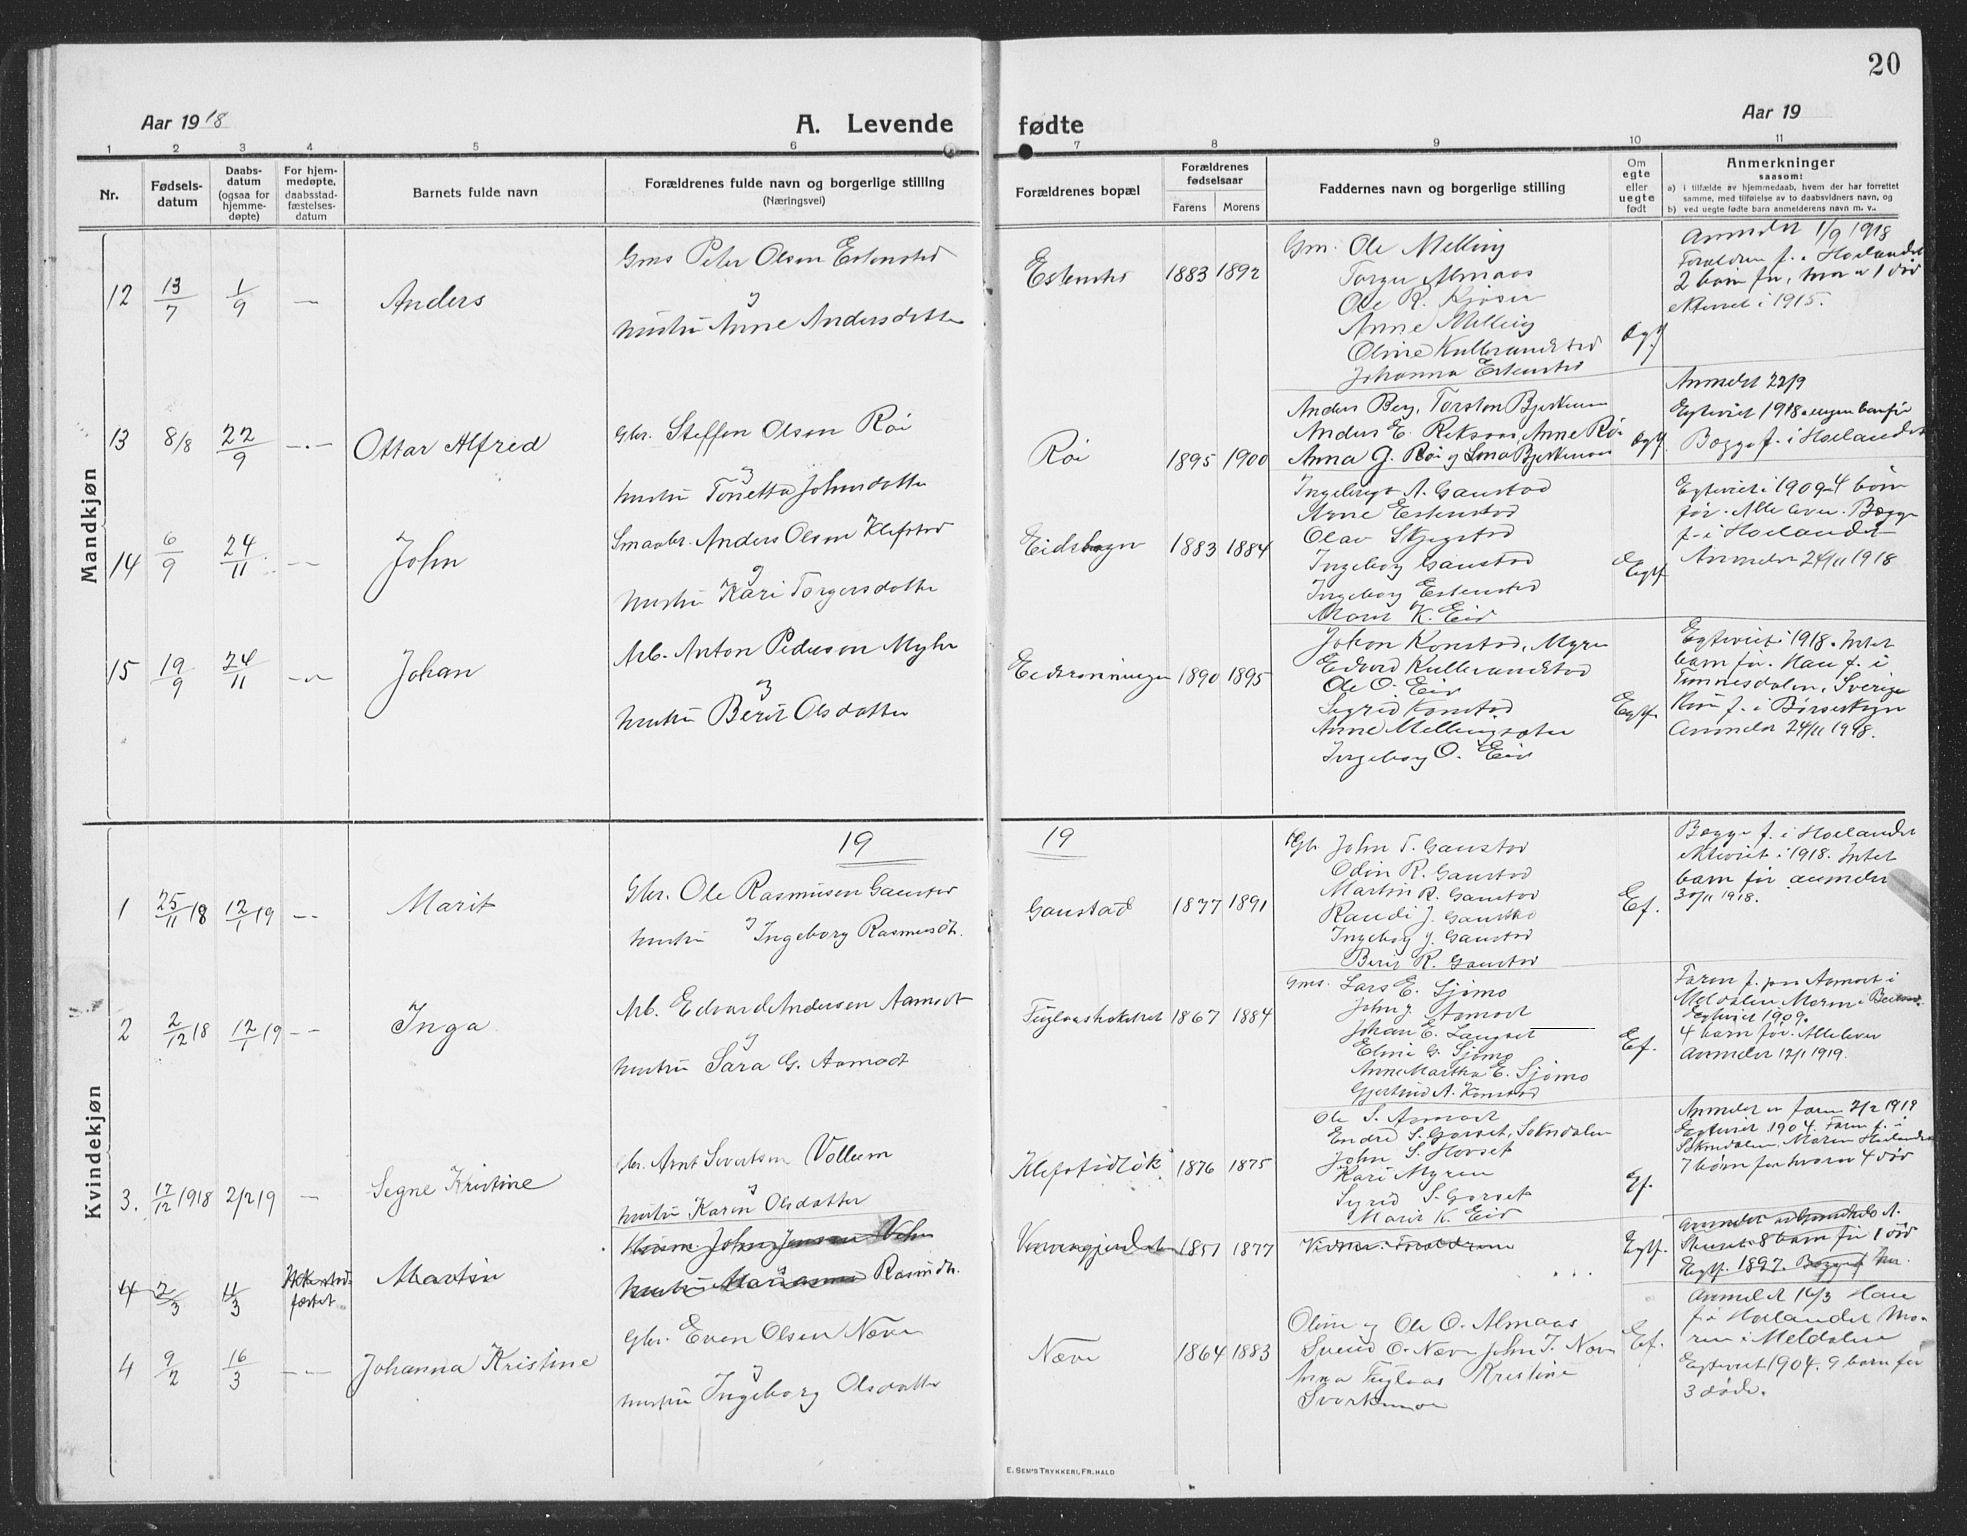 20
Aar 1918
A. Levende fødte
Aar 19
1 2 3 4 5 6 7 8 9 10 11
Nr.
Fødselsdatum
Daabsdatum (ogsaa for hjemmedøpte)
For hjemmedøpte, daabsstadfæstelsesdatum
Barnets fulde navn
Forældrenes fulde navn og borgerlige stilling
(Næringsvei)
Forældrenes bopæl
Forældrenes fødselsaar
Farens Morens
Faddernes navn og borgerlig stilling
Om egte eller uegte født
Anmerkninger
saasom:
a) i tilfælde av hjemmedaab, hvem der har forrettet
samme, med tilføielse av to daabsvidners navn, og
b) ved uegte fødte barn anmelderens navn m. v.
Mandkjøn
12 13/7 1/9 — Anders
Gms Peter Olsen Estenstad
og
hustru Anne Andersdatter
Estenstad 1883 1892
Gm. Ole Melling
Torger Almaas
Ole R. Kjøsen
Anne Melling
Oline Kulbrandstad
Johanna Estenstad
Egtf.
Anmeldt 1/9 1918
Forældren f. i Hølandet
2 barn før, hvorav 1 død
ekteviet i 1915.
13 8/8 22/9 —.— Ottar Alfred
Gbr. Steffen Olsen Røi
og
hustru Tonetta Johnsdatter
Røi 1895 1900
Anders Berg, Torsten Bjerkenaas
Anders E. Anne Røi
Anna J. Røi og Bjerkenaas
Egtf.
Anmeldt 22/9
Egteviet 1918. ingen barn før
Begge f. i Hølandet
14 6/9 24/11 —.— John
Smaabr. Anders Olsen Klefstad
og
hustru Kari Torgersdatter
Eidshagen 1883 1884
Ingebrigt A. Gaustad
Arne Estenstad
Olav Skjegstad
Ingeborg Gaustad
Ingeborg Estenstad
Marit K. Eid
Egtf.
Egteviet i 1909. 4 børn
før. Alle lever. Begge
f. i Hølandet
Anmeldt 24/11 1918
15 19/9 24/11 —.— Johan
Arb. Anton Pederson Myhr
og
hustru Berit Olsdatter
1890 1895
Johan Konstad, Myren
Edvard Kulbrandstad
Ole O. Eid
Sigrid Konstad
Anne Mellingsæter
Ingeborg O. Eid
Egtf.
Egteviet i 1918. Intet
barn før. Han f. i
Sverige
Hun f. i Børseskogn
Anmeldt 24/11 1918.
Kvindekjøn
19
19
1 25/11 18 12/1 19 —.— Marit
Gbr. Ole Rasmusen Gaustad
og
hustru Ingeborg Rasmusdt.
Gaustad 1877 1891
Gb. John T. Gaustad
Odin R. Gaustad
Martin R. Gaustad
Randi J. Gaustad
Ingeborg J. Gaustad
Berit R. Gaustad
Ef.
Begge f. i Hølandet
ekteviet i 1918. Intet
barn før anmeldt
30/11 1918.
2 2/12 18 12/1 19 —.— Inga
Arb. Edvard Andersen Aamodt
og
hustru Sara G. Aamodt
1867 1884
Gms. Lars E. Sjømo
John J. Aamodt
Johan E. Langset
Eline G. Sjømo
Anne Martha E. Sjømo
Gjertrud A. Konstad
Ef.
Faren f. paa Aamodt i
Meldalen Moren i
Egteviet 1909.
4 barn før. Alle lever
Anmeldt 12/1 1919.
3. 17/12 1918 2/2 19 — Segne Kristine
Gbr. Arnt Sivertsen Vollum
og
hustru Karen Olsdatter
1876 1875
Ole S. Aamodt
Endre S. Gorset, Sokndalen
John S. Horset
Kari Myren
Syrid S. Gorset
Marit K. Eid
Ef.
Anmeldt av faren 2/2 1919
Egteviet 1904. Faren f. i
Soknedalen, Moren Hølandet
7 børn før hvorav 4 død
4 2/3 11/3 Martin
John Jensen
og
hustru Rasmdt.
1851 1877
Forældrene
Egtf.
8 barn før 1 død
Egtf. 1897.
4 9/2 16/3 —.— Johanna Kristine
Gbr. Even Olsen Næve
og
hustru Ingeborg Olsdatter
Næve 1864 1883
Oline og Ole O. Almaas
Svend O. Næve John I. Næve
Anna Fuglaas Kristine
Svorkmoe
Ef.
Anmeldt 16/3 Han
f. i Hølandet Moren
i Meldalen
Egteviet 1904. 9 barn før
3 døde.
E. SEM'S TRYKKERI, FR.HALD